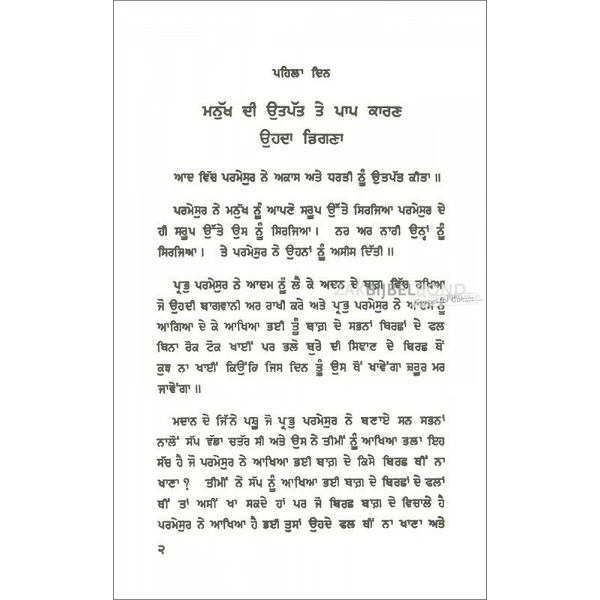 ਪਹਿਲਾ ਦਿਨ
ਮਨੁੱਖ ਦੀ ਉਤਪੱਤ ਤੇ ਪਾਪ ਕਾਰਣ
ਉਹਦਾ ਡਿਗਣਾ
ਆਦ ਵਿੱਚ ਪਰਮੇਸੁਰ ਨੇ ਅਕਾਸ ਅਤੇ ਧਰਤੀ ਨੂੰ ਉਤਪੱਤ ਕੀਤਾ ॥
ਪਰਮੇਸੁਰ ਨੇ ਮਨੁੱਖ ਨੂੰ ਆਪਣੇ ਸਰੂਪ ਉੱਤੇ ਸਿਰਜਿਆ ਪਰਮੇਸੁਰ ਦੇ
ਹੀ ਸਰੂਪ ਉੱਤੇ ਉਸ ਨੂੰ ਸਿਰਜਿਆ । ਨਰ ਅਰ ਨਾਰੀ ਉਨ੍ਹਾਂ ਨੂੰ
ਸਿਰਜਿਆ । ਤੇ ਪਰਮੇਸੁਰ ਨੇ ਉਹਨਾਂ ਨੂੰ ਅਸੀਸ ਦਿੱਤੀ ॥
ਪ੍ਰਭੁ ਪਰਮੇਸੁਰ ਨੇ ਆਦਮ ਨੂੰ ਲੈ ਕੇ ਅਦਨ ਦੇ ਬਾਗ਼ ਵਿੱਚ ਰਖਿਆ
ਜੋ ਉਹਦੀ ਬਾਗਵਾਨੀ ਅਰ ਰਾਖੀ ਕਰੇ ਅਤੇ ਪ੍ਰਭੁ ਪਰਮੇਸੁਰ ਨੇ ਆਦਮ ਨੂੰ
ਆਗਿਆ ਦੇ ਕੇ ਆਖਿਆ ਭਈ ਤੂੰ ਬਾਗ਼ ਦੇ ਸਭਨਾਂ ਬਿਰਛਾਂ ਦੇ ਫਲ
ਬਿਨਾ ਰੋਕ ਟੋਕ ਖਾਈਂ ਪਰ ਭਲੇ ਬੁਰੇ ਦੀ ਸਿਞਾਣ ਦੇ ਬਿਰਛ ਥੋਂ
ਕੁਝ ਨਾ ਖਾਈਂ ਕਿਉਂਕਿ ਜਿਸ ਦਿਨ ਤੂੰ ਉਸ ਥੋਂ ਖਾਵੇਂਗਾ ਜ਼ਰੂਰ ਮਰ
ਜਾਵੇਂਗਾ ॥
ਮਦਾਨ ਦੇ ਜਿੰਨੇ ਪਸ਼ੂ ਜੋ ਪ੍ਰਭੁ ਪਰਮੇਸੁਰ ਨੇ ਬਣਾਏ ਸਨ ਸਭਨਾਂ
ਨਾਲੋਂ ਸੱਪ ਵੱਡਾ ਚਤਰ ਸੀ ਅਤੇ ਉਸ ਨੇ ਤੀਮੀਂ ਨੂੰ ਆਖਿਆ ਭਲਾ ਇਹ
ਸੱਚ ਹੈ ਜੋ ਪਰਮੇਸੁਰ ਨੇ ਆਖਿਆ ਭਈ ਬਾਗ਼ ਦੇ ਕਿਸੇ ਬਿਰਛ ਥੀਂ ਨਾ
ਖਾਣਾ ? ਤੀਮੀਂ ਨੇ ਸੱਪ ਨੂੰ ਆਖਿਆ ਭਈ ਬਾਗ਼ ਦੇ ਬਿਰਛਾਂ ਦੇ ਫਲਾਂ
ਥੀਂ ਤਾਂ ਅਸੀਂ ਖਾ ਸਕਦੇ ਹਾਂ ਪਰ ਜੋ ਬਿਰਛ ਬਾਗ਼ ਦੇ ਵਿਚਾਲੇ ਹੈ
ਪਰਮੇਸੁਰ ਨੇ ਆਖਿਆ ਹੈ ਭਈ ਤੁਸਾਂ ਉਹਦੇ ਫਲ ਥੀਂ ਨਾ ਖਾਣਾ ਅਤੇ
੨
ZAKBIJBELBOND